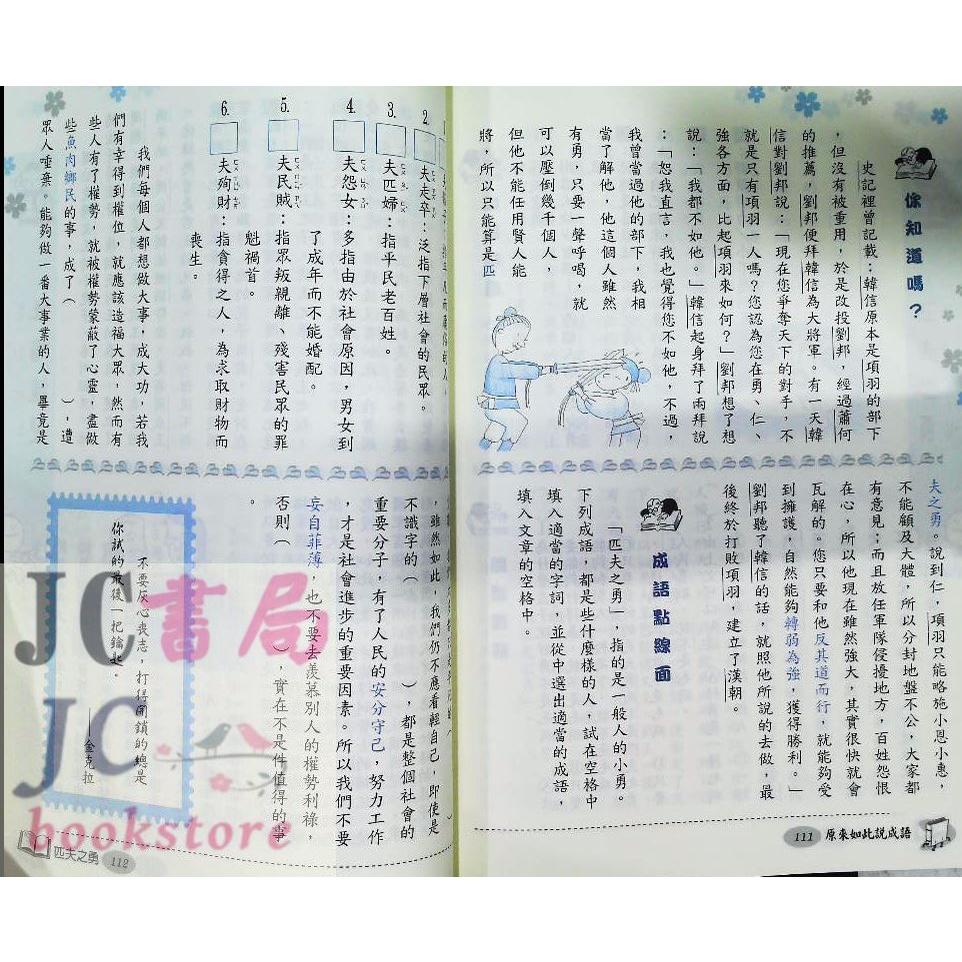 你知道嗎？
史記裡曾記載：韓信原本是項羽的部下
，但沒有被重用，於是改投劉邦，經過蕭何
的推薦，劉邦便拜韓信為大將軍。有一天韓
信對劉邦說：「現在您爭奪天下的對手，不
就是只有項羽一人嗎？您認為您在勇、仁、
強各方面，比起項羽來如何？」劉邦想了想
說：「我都不如他。」韓信起身拜了兩拜說
：「恕我直言，我也覺得您不如他，不過，
我曾當過他的部下，我相
當了解他，他這個人雖然
有勇，只要一聲呼喝，就
可以壓倒幾千個人，
但他不能任用賢人能
將，所以只能算是匹
夫之勇。說到仁，項羽只能略施小恩小惠，
不能顧及大體，所以分封地盤不公，大家都
有意見；而且放任軍隊侵擾地方，百姓怨恨
在心，所以他現在雖然強大，其實很快就會
瓦解的。您只要和他反其道而行，就能夠受
到擁護，自然能夠轉弱為強，獲得勝利。」
劉邦聽了韓信的話，就照他所說的去做，最
後終於打敗項羽，建立了漢朝。
成語點線面
「匹夫之勇」，指的是一般人的小勇。
下列成語，都是些什麼樣的人，試在空格中
填入適當的字詞，並從中選出適當的成語，
填入文章的空格中。
111 原來如此說成語
2. □夫走卒：泛指下層社會的民眾。
3. □夫匹婦：指平民老百姓。
4. □夫怨女：多指由於社會原因，男女到
了成年而不能婚配。
5. □夫民賊：指眾叛親離、殘害民眾的罪
魁禍首。
6. □夫殉財：指貪得之人，為求取財物而
喪生。
我們每個人都想做大事，成大功，若我
們有幸得到權位，就應該造福大眾，然而有
些人有了權勢，就被權勢蒙蔽了心靈，盡做
些魚肉鄉民的事，成了（　　），遭
眾人唾棄。能夠做一番大事業的人，畢竟是
，雖然如此，我們仍不應看輕自己，即使是
不識字的（　　），都是整個社會的
重要分子，有了人民的安分守己，努力工作
，才是社會進步的重要因素。所以我們不要
妄自菲薄，也不要去羨慕別人的權勢利祿，
否則（　　），實在不是件值得的事
。
不要灰心喪志，打得開鎖的總是
你試的最後一把鑰匙。
——金克拉
匹夫之勇 112
JC書局
JC
bookstore